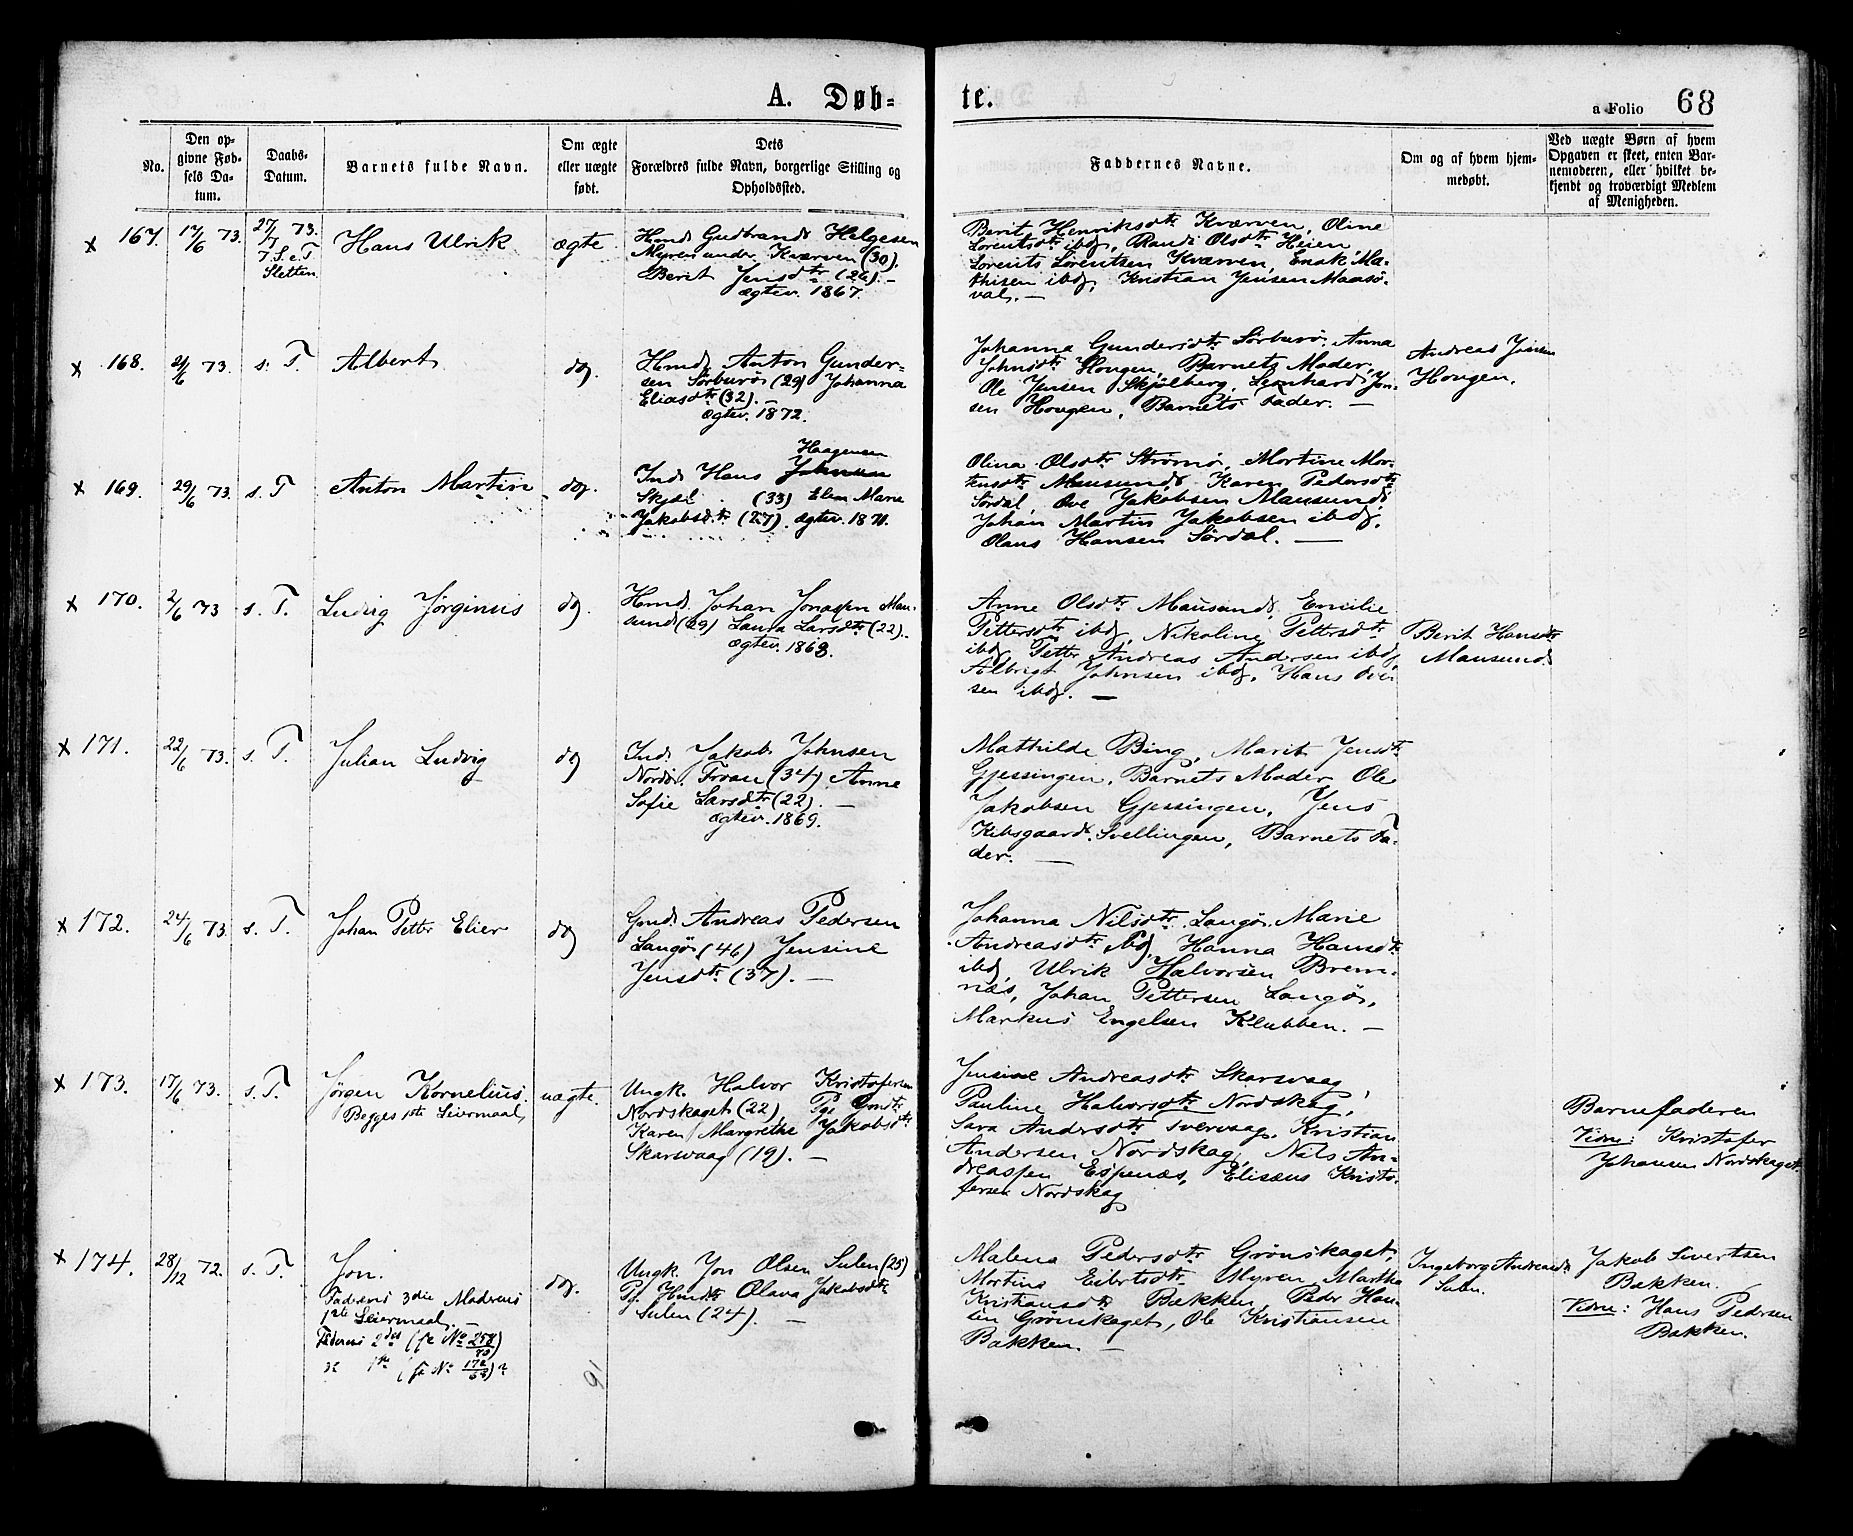 A. Døb-
te.
a Folio 68
No.
Den op-
givne Fød-
sels Da-
tum.
Daabs-
Datum.
Barnets fulde Navn.
Om ægte
eller uægte
født.
Dets
Forældres fulde Navn, borgerlige Stilling og
Opholdssted.
Faddernes Navne.
Om og af hvem hjem-
medøbt.
Ved uægte Børn af hvem
Opgaven er skeet, enten Bar-
nemoderen, eller hvilket be-
kjendt og troværdigt Medlem
af Menigheden.
x 167.
17/6 73.
27/7 73.
7 S. e. T
Sletten
Hans Ulrik
ægte
Hmd. Gudbrand Helgesen
Myren under Kværven (30).
Berit Jensdtr (26). —
ægtev. 1867.
Berit Henriksdtr Kværven, Oline
Lorentsdtr ibd, Randi Olsdtr Heien
Lorents Lorentsen Kværven, Enok Ma-
thisen ibd, Kristian Jensen Maasø-
val. —
x 168.
21/6 73.
s. T.
Albert
do.
Hmd. Anton Gunder-
sen Sørburø (29) Johanna
Eliasdtr (32). —
ægtev. 1872.
Johanna Gundersdtr Sørburø, Anna
Johnsdtr Hongen, Barnets Moder,
Ole Jensen Skjølberg, Leonhard Jen-
sen Hongen, Barnets Fader. —
Andreas Jensen
Hongen.
x 169.
29/6 73.
s. T
Anton Martin
do.
Haagensen
Ind. Hans
Skjæl (33) Elen Marie
Jakobsdtr (27). ægtev. 1871.
Olina Olsdtr Strømø, Mortine Mor-
tensdtr Mausund, Karen Pedersdtr
Sørdal, Ove Jakobsen Mausund,
Johan Martin Jakobsen ibd,
Olaus Hansen Sørdal. —
x 170.
2/6 73
s. T.
Ludvig Jørginus
do.
Hmd. Johan Jonassen Mau-
sund (29) Laura Larsdtr (22).
ægtev. 1868.
Anne Olsdtr Mausund, Emilie
Pettersdtr ibd, Nikoline Pettersdtr
ibd, Petter Andreas Andersen ibd,
Albrigt Johnsen ibd, Hans Ove-
sen ibd. —
Berit Hansdtr
Mausund.
x 171.
22/6 73.
s. T.
Julian Ludvig
do
Ind. Jakob Johnsen
Nordø. Froan (34) Anne
Sofie Larsdtr (22). —
ægtev. 1869.
Mathilde Bing, Marit Jensdtr
Gjessingen, Barnets Moder Ole
Jakobsen Gjessingen, Jens
Kibsgaard Svellingen, Barnets Fa-
der. —
x 172.
24/6 73.
s. T.
Johan Petter Elier
do
Gmd. Andreas Pedersen
Langø (46) Jensine
Jensdtr (37). —
Johanna Nilsdtr Langø, Marie
Andreasdtr ibd, Hanna Hansdtr
ibd, Ulrik Halvorsen Brem-
næs, Johan Pettersen Langø,
Markus Engelsen Klubben. —
x 173.
17/6 73.
s. T.
Jørgen Kornelius.
Begges 1ste Leiermaal
uægte.
Ungk. Halvor Kristofersen
Nordskaget (22), Pge Gmdtr
Karen Margrethe Jakobsdtr
Skarsvaag (19). —
Jensine Andreasdtr Skarsvaag,
Pauline Halvorsdtr Nordskag,
Sara Andersdtr Svervaag, Kristian
Andersen Nordskag, Nils An-
dreassen Espenæs, Elisæus Kristo-
fersen Nordskag
Barnefaderen
Vidne: Kristofer
Johansen Nordskaget.
x 174.
28/12 72.
s. T.
Jon.
Faderens 3die Moderens
1ste Leiermaal. —
Faderens 2det (se No 258/70)
1ste (se No 172/69)
do.
Ungk. Jon Olsen Sulen (25)
Pge Hmdtr Olava Jakobsdtr
Sulen (24). —
Malena Pedersdtr Grønskaget,
Mortine Eibertsdtr Myren, Martha
Kristiansdtr Bakken, Peder Han-
sen Grønskaget, Ole Kristiansen
Bakken. —
Ingeborg Andreasdtr
Sulen.
Jakob Sivertsen
Bakken.
Vidne: Hans Pedersen
Bakken.